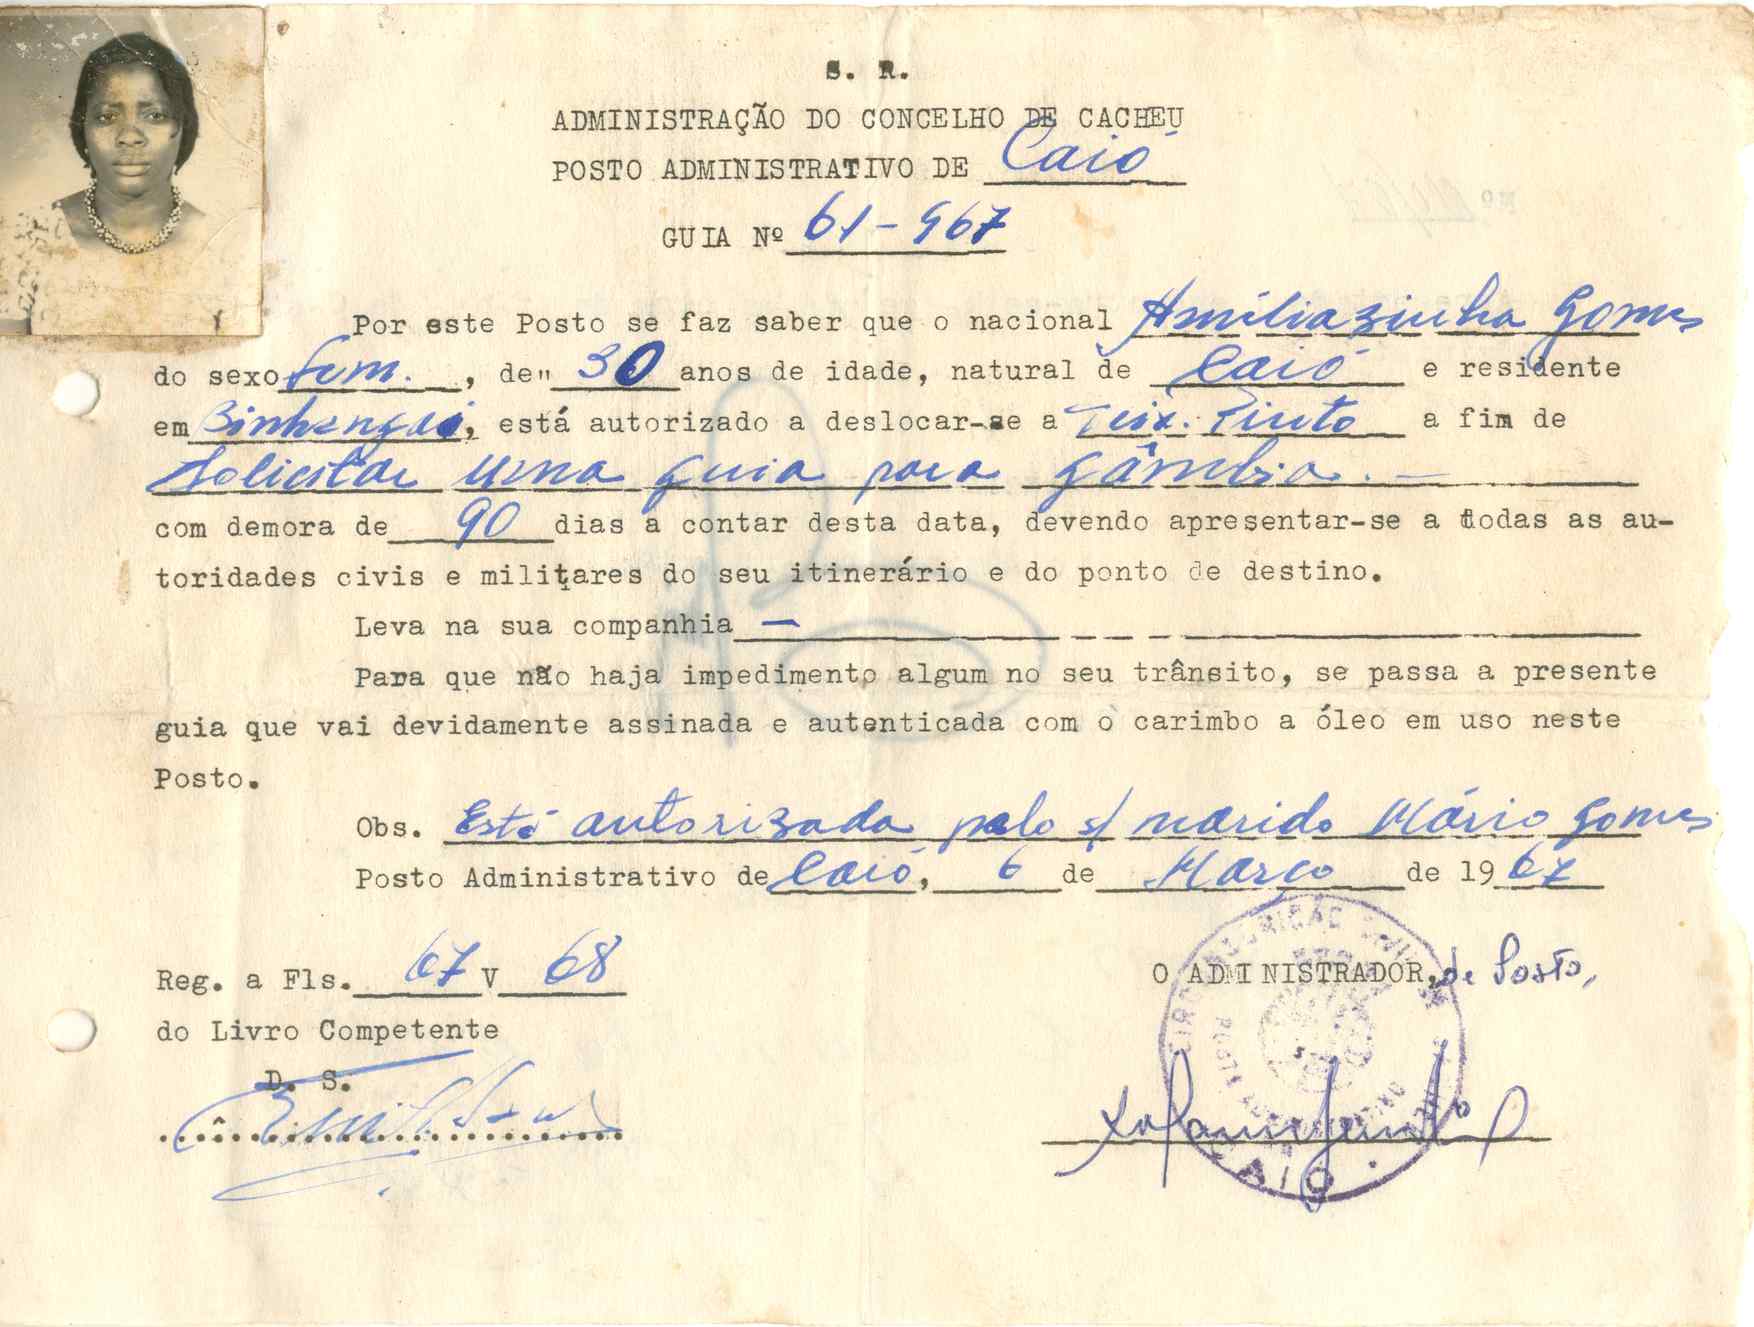 S. R.
ADMINISTRAÇÃO DO CONCELHO DE CACHEU
POSTO ADMINISTRATIVO DE Caió
GUIA Nº 61-967
Por este Posto se faz saber que o nacional Amíliazinha Gomes
do sexo fem. , de" 30 anos de idade, natural de Caió e residente
em , está autorizado a deslocar-se a Teix. Pinto a fim de
Solicitar uma guia para Gâmbia. —
com demora de 90 dias a contar desta data, devendo apresentar-se a todas as au-
toridades civis e militares do seu itinerário e do ponto de destino.
Leva na sua companhia —
Para que não haja impedimento algum no seu trânsito, se passa a presente
guia que vai devidamente assinada e autenticada com o carimbo a óleo em uso neste
Posto.
Obs. Está autorizada pelo s/ marido Mário Gomes
Posto Administrativo de Caió, 6 de Março de 1967
Reg. a Fls. 67 V 68
O ADMINISTRADOR, de Posto,
do Livro Competente
D. S.
POSTO ADMINISTRATIVO
CAIÓ